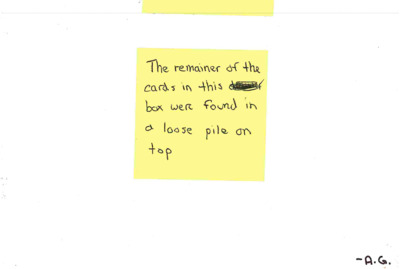 The remainer of the
cards in this
box were found in
a loose pile on
top
-A.G.